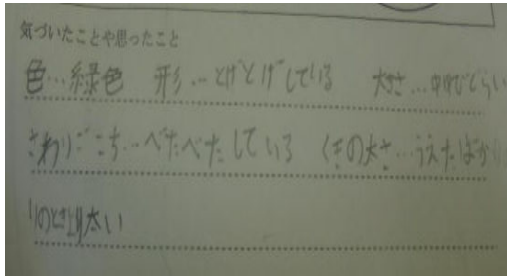 気づいたことや思ったこと
色…緑色 形…とげとげしている 大きさ…中ゆびぐらい
さわりごこち…べたべたしている くきの太さ…うえたばかり
のときより太い